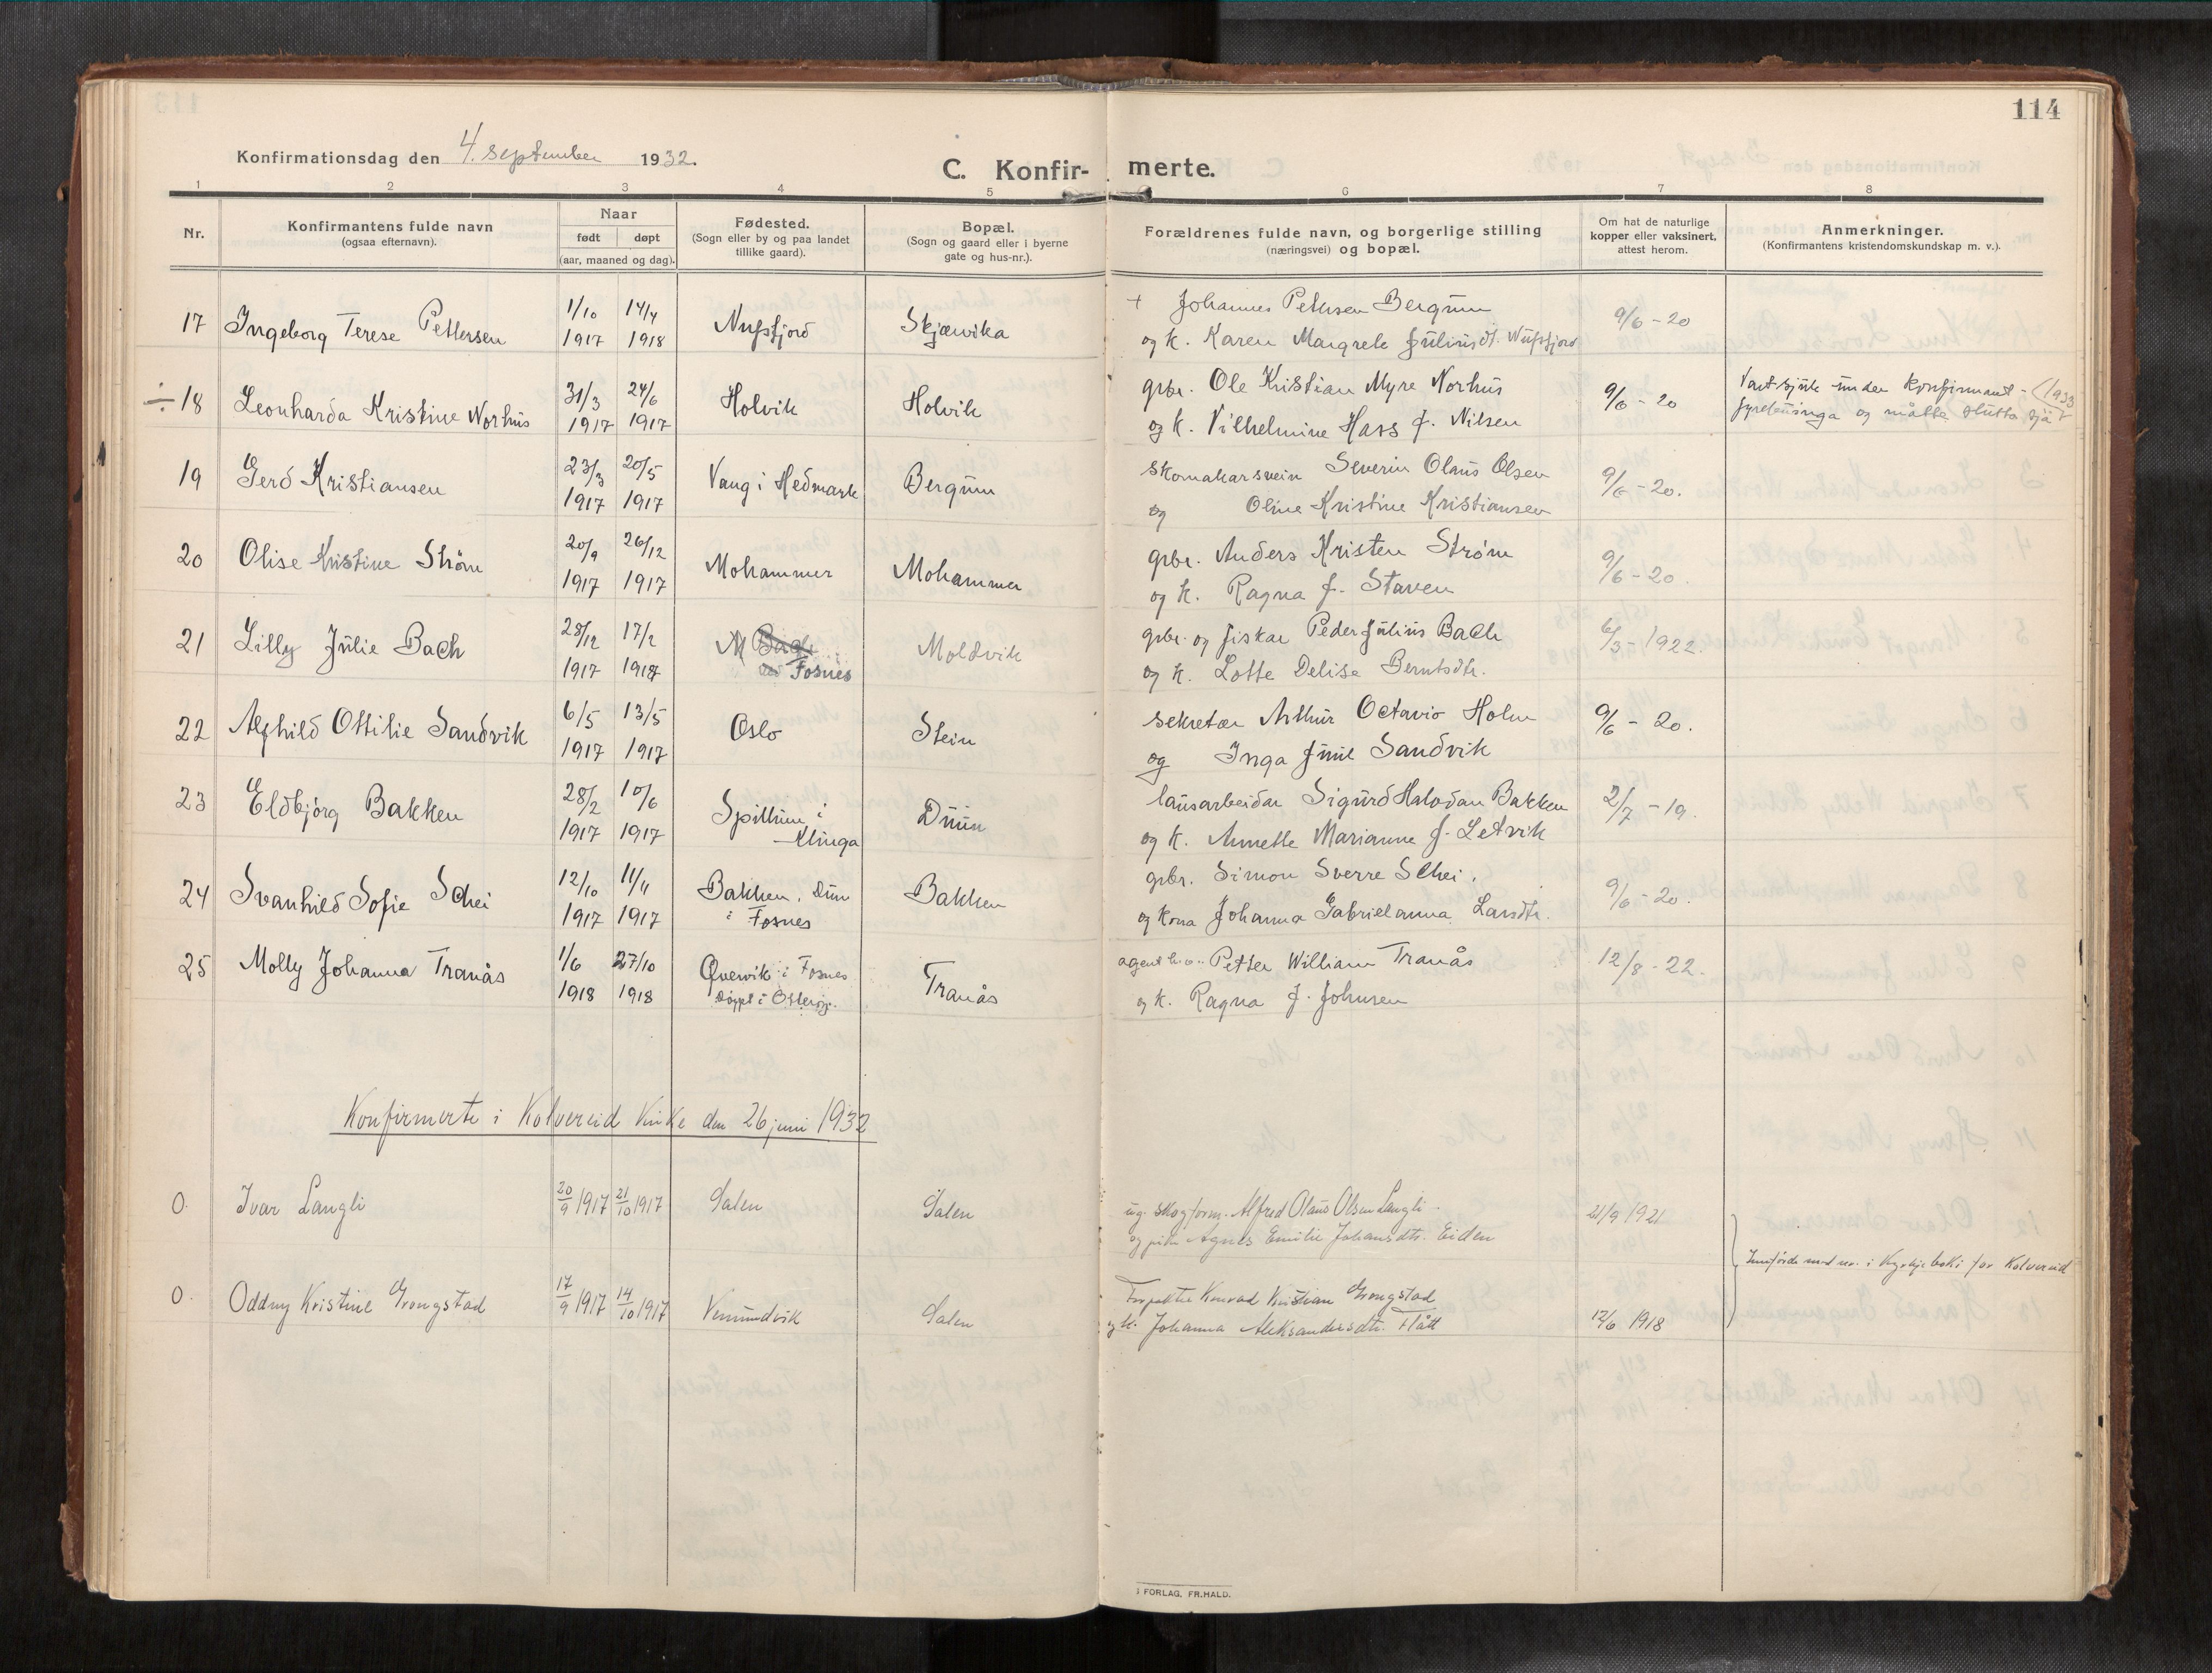 114
Konfirmationsdag den 4. september 1932.
C. Konfir- merte.
1 2 3 4 5 6 7 8
Nr.
Konfirmantens fulde navn
(ogsaa efternavn).
Naar
født døpt
(aar, maaned og dag).
Fødested.
(Sogn eller by og paa landet
tillike gaard).
Bopæl.
(Sogn og gaard eller i byerne
gate og hus-nr.).
Forældrenes fulde navn, og borgerlige stilling
(næringsvei) og bopæl.
Om hat de naturlige
kopper eller vaksinert,
attest herom.
Anmerkninger.
(Konfirmantens kristendomskundskap m. v.).
17 Ingeborg Terese Pettersen 1/10 1917 14/4 1918 Nufsfjord Skjærvika
+ Johannes Petersen Bergum
og k. Karen Margrete Juliusdt. Nufsfjord
9/6 - 20
÷ 18 Leonharda Kristine Norhus 31/3 1917 24/6 1917 Holvik Holvik
grbr. Ole Kristian Myre Norhus
og k. Vilhelmine Hass f. Nilsen
9/6 - 20
Vart sjuk under konfirmant- (1933
fyreleusinga og måtte slutta
19 Gerd Kristiansen 23/3 1917 20/5 1917 Vang i Hedmark Bergum
skomakarsvein Severin Olaus Olsen
og Oline Kristine Kristiansen
9/6 - 20.
20 Olise Kristine Strøm 20/9 1917 26/12 1917 Mohammer Mohammer
grbr. Anders Kristen Strøm
og k. Ragna f. Staven
9/6 - 20.
21 Lilly Julie Bach 28/12 1917 17/2 1918 M Bach Fosnes Moldvik
grbr. og fiskar Peder Julius Bach
og k. Lotte Delise Berntsdtr.
6/3 - 1922.
22 Alfhild Ottilie Sandvik 6/5 1917 13/5 1917 Oslo Stein
sekretær Arthur Octavio Holm
og Inga June Sandvik
9/6 - 20.
23 Eldbjørg Bakken 28/2 1917 10/6 1917 Spillum i Klinga Duun
lausarbeidar Sigurd Halvdan Bakken
og k. Annette Marianne f. Letvik
2/7 - 19.
24 Svanhild Sofie Schei 12/10 1917 11/11 1917 Bakken, Duun i Fosnes Bakken
grbr. Simon Sverre Schei.
og kona Johanna Gabrielanna Larsdtr.
9/6 - 20.
25 Molly Johanna Tranås 1/6 1918 27/10 1918 Quervik i Fosnes Døypt i Otterøy. Tranås
agent Petter William Tranås
og k. Ragna f. Johnsen
12/8 - 22.
Konfirmerte i Kolvereid kirke den 26 juni 1932
0. Ivar Langli 20/9 1917 21/10 1917 Salen Salen
ug. skogform. Alfred Olaus Olsen Langli.
og pike Agnes Emilie Johansdtr. Eiden
21/9 1921
Innførde med nr. i kyrkjeboki for Kolvereid
0. Oddny Kristine Grongstad 17/9 1917 14/10 1917 Vemundvik Salen
Forpakter Konrad Kristian Grongstad
og k. Johanna Aleksandersdtr. Flått
12/6 1918
FORLAG. FR. HALD.